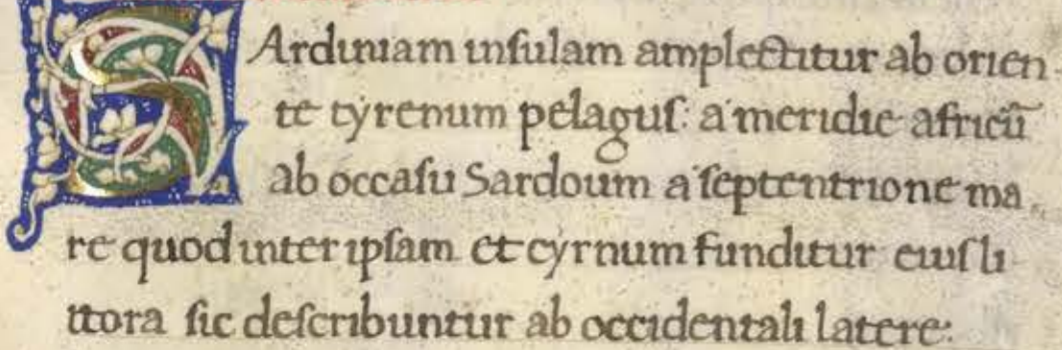 SArduniam inſulam amplectitur ab orien
te tyrenum pelaguſ: a meridie africū
ab occaſu Sardoum a ſeptentrione ma
re quod inter ipſam et cyrnum funditur eiuſ li
ttora ſic deſcribuntur ab occidentali latere: